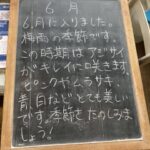 6月
6月に入りました。
梅雨の季節です。
この時期はアジサイ
がキレイに咲きます。
ピンクやムラサキ、
青、白などとても美しい
です。季節をたのしみま
しょう！